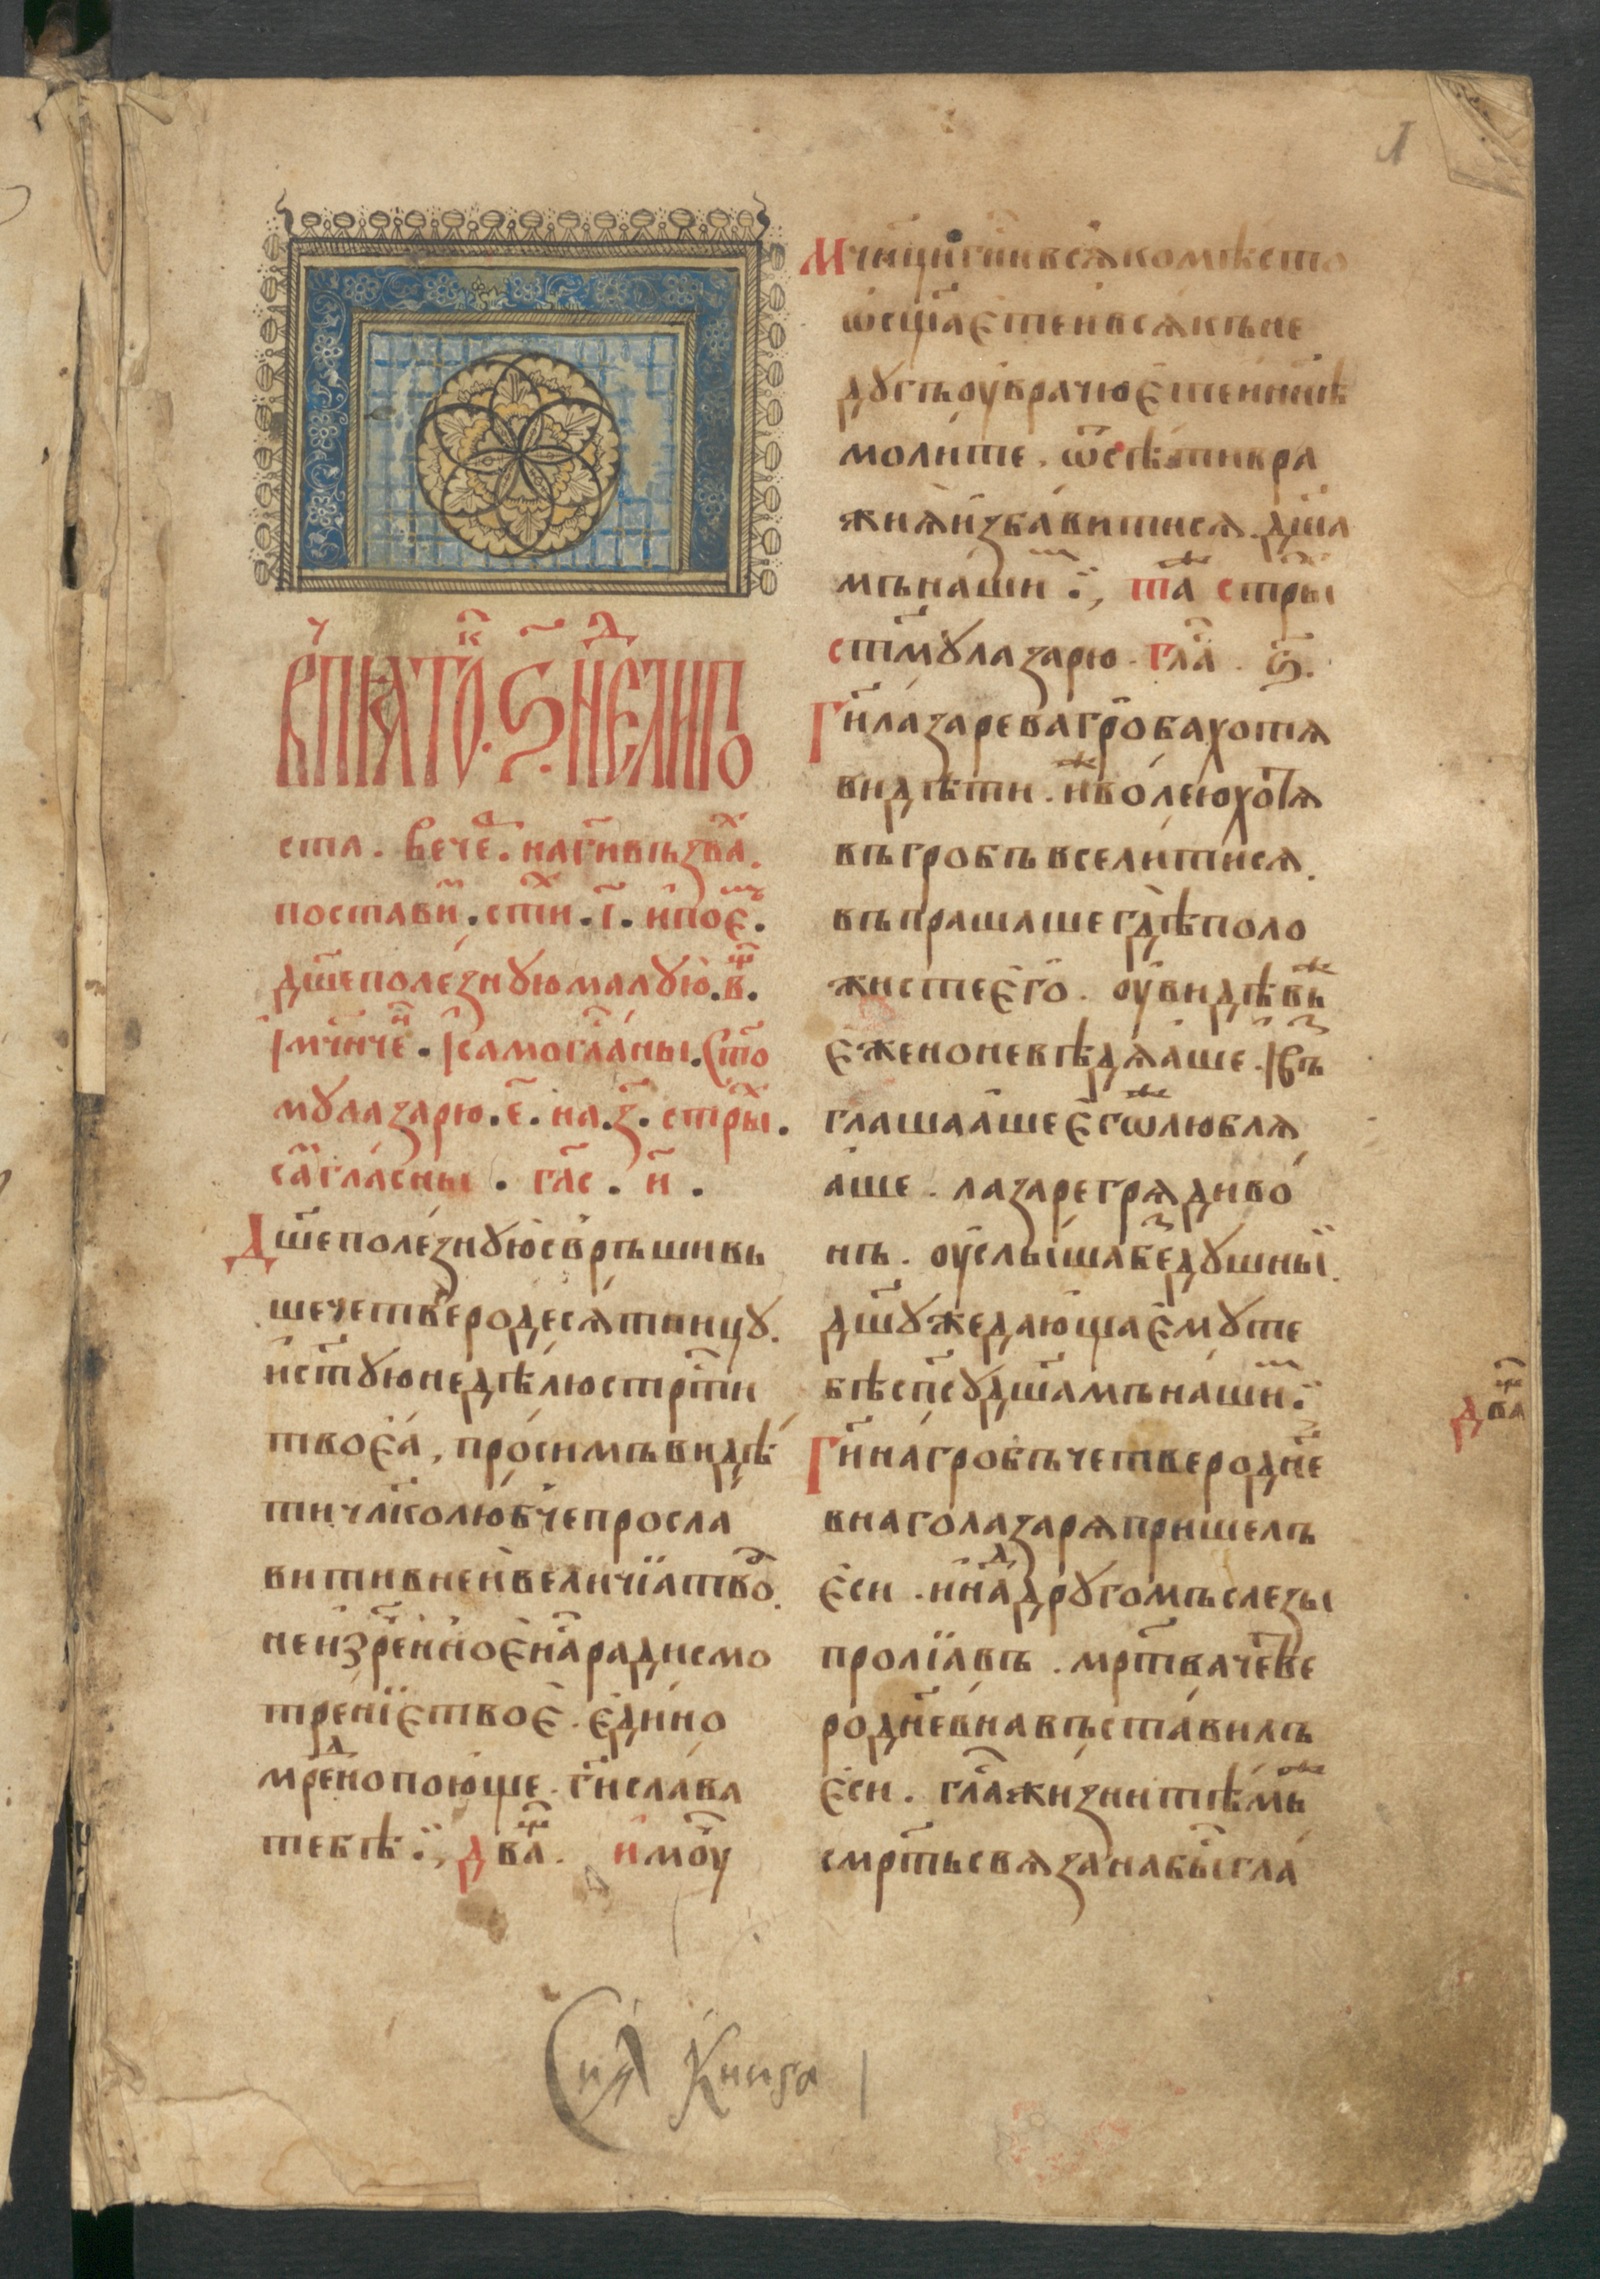 В пято́к ѕ҃ нед̑ли по
ста. вече́р. на г҃и въззва́х.
постави́м. сти́х. і҃. и҆ пое́м.
дш҃еполе́знꙋю малꙋю̀. в҃.
І҆ мч҃нче́н. І҆ самогла́сны. Ст҃о
мꙋ лазарю. е҃. на. з҃. стр҃ы.
са̑гла́сны. гла́с. и҃.
Дш҃еполе́знꙋю съврьши́въ
ше четверодесѧтницꙋ.
и҆ ст҃ꙋю недѣ́лю стр҃ти
твоеѧ̀, про́симъ видѣ
ти чл҃колю́бче просла
вити в не́й вели́чїа тво.
неизре́нное на́с ради смо
тре́нїе твоѐ. еди́но
мр́ено пою́ще. г҃и сла́ва
тебѣ ⁘ два́. и҆ мо́у
Мч҃нци г҃ни всѧ́ко мѣсто
ѡ҆сщ҃аете и҆ всѧкъ не
дꙋгъ оу҆врачюете и҆ нн҃ѣ
моли́те. ѿ сѣ́ти вра
жиѧ и҆зба́витисѧ дш҃а
мъ нашим ⁘ та́ж стр҃ы
ст҃мꙋ лазарю. гла́. ѕ҃.
Г҃и лазарева гро́ба хотѧ
видѣти. и҆же во́лею хотѧ
въ гробъ всели́тисѧ.
въпрашаше гдѣ поло
жисте е҆го̀. оу҆видѣвже
е҆же но не вѣдѧаше. І҆ въз
глашааше е҆гѡже люблѧ
а́ше. лазаре грѧди во́
нъ. оу҆слы́ша безⷣꙋшныи.
дш҃ꙋ же дающа е҆мꙋ те
бѣ сп҃сꙋ дш҃амъ на́шим ⁘
Г҃и на гробъ четверодне
внаго лазарѧ пришелъ
е҆си. и҆ над дрꙋгомъ слезы
пролїа́въ. мр҃тва че́тве
родне́вна въста́вилъ
е҆си. гла́са жи́зни тѣ́мже
смр҃ть свѧзана бы́ гла́
два́
Сия Книга